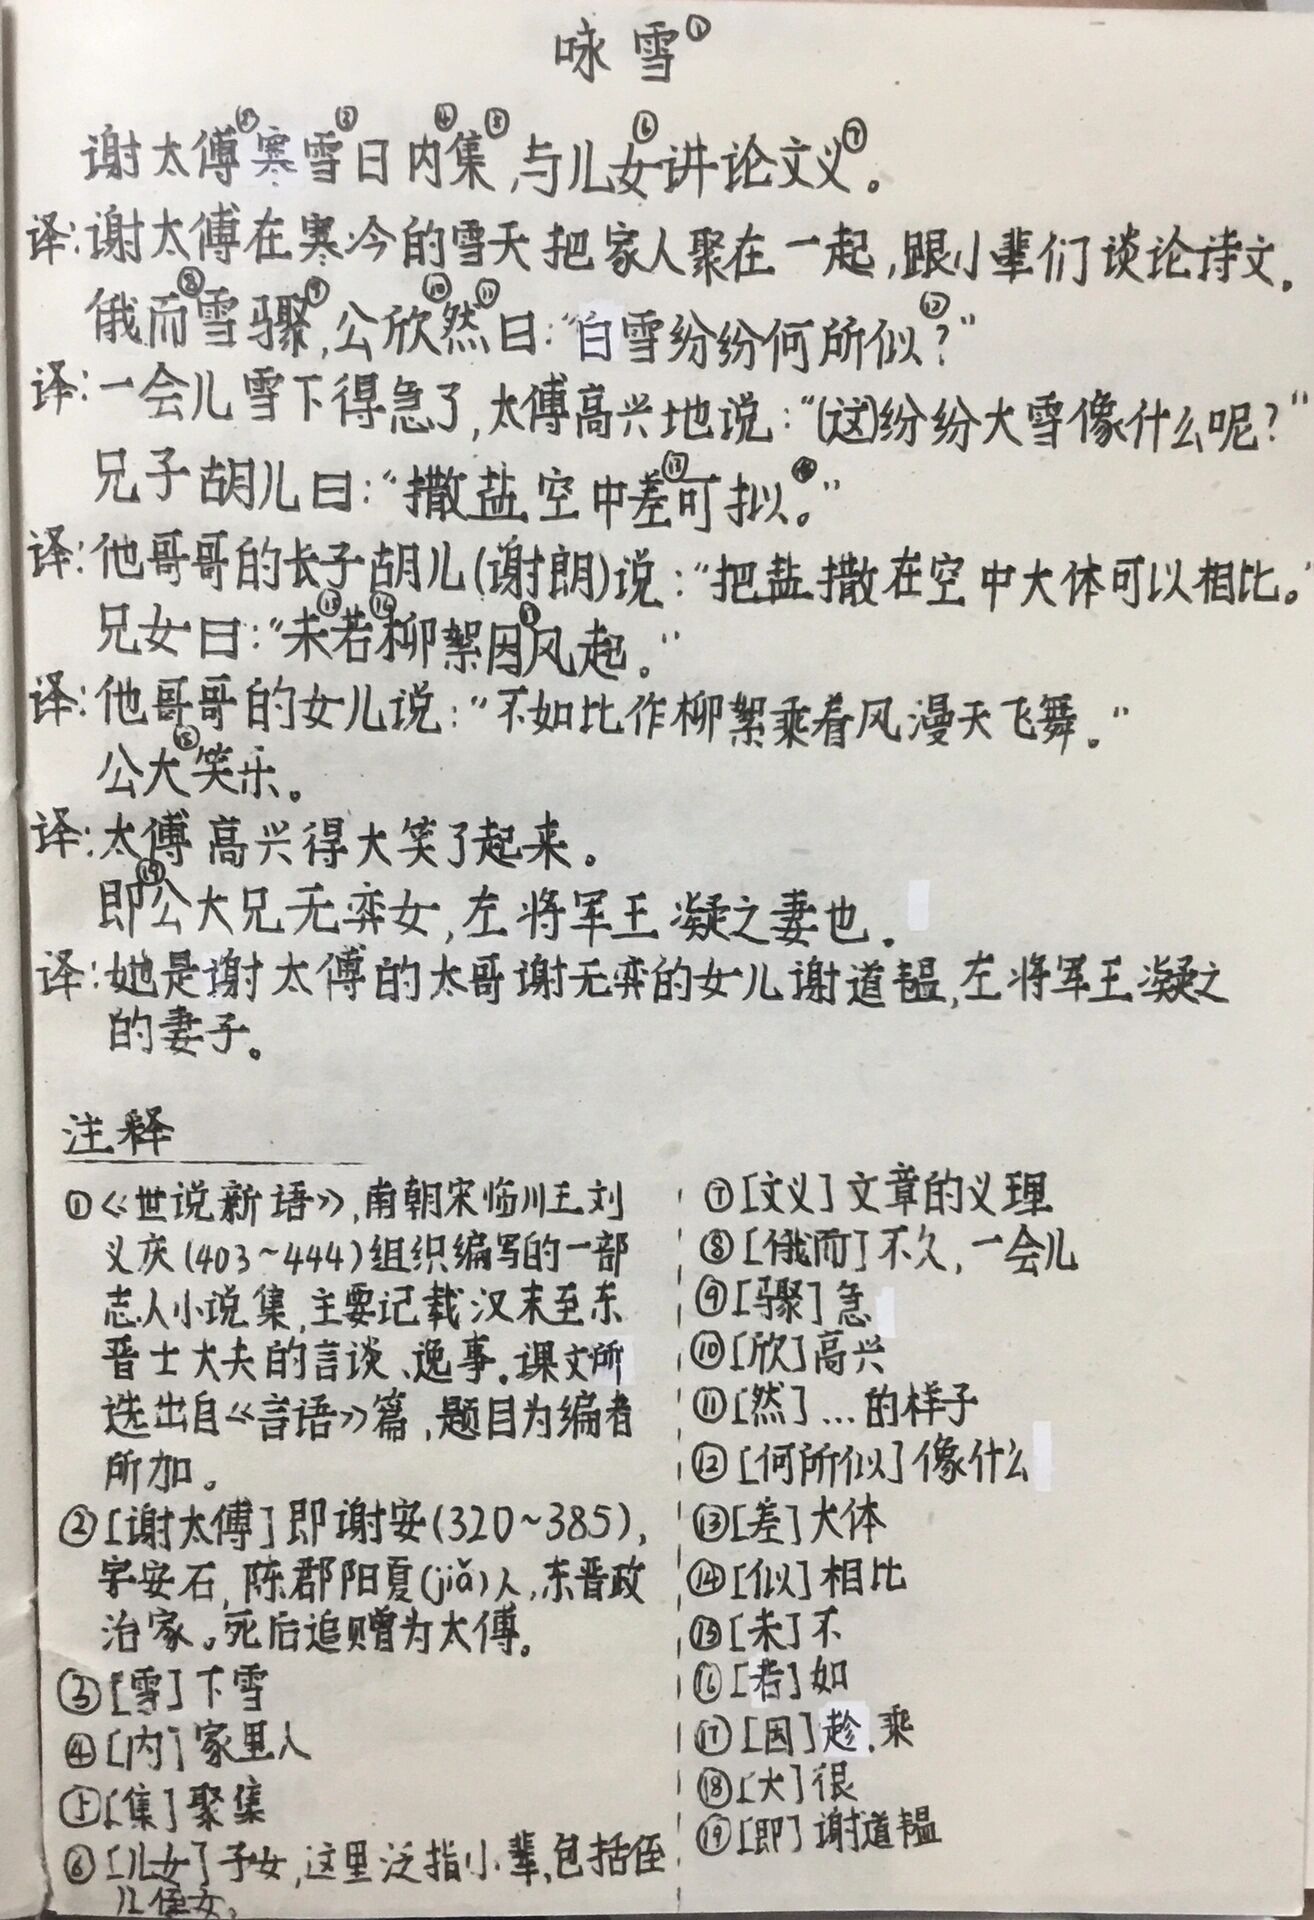 咏雪①
谢太傅②寒雪③日内④集⑤,与儿女⑥讲论文义⑦。
译:谢太傅在寒冷的雪天把家人聚在一起,跟小辈们谈论诗文.
俄而⑧雪骤⑨,公欣⑩然⑪曰:“白雪纷纷何所似⑫?”
译:一会儿雪下得急了,太傅高兴地说:“(这)纷纷大雪像什么呢?”
兄子胡儿曰:“撒盐空中差⑬可拟⑭。”
译:他哥哥的长子胡儿(谢朗)说:“把盐撒在空中大体可以相比。”
兄女曰:“未⑮若⑯柳絮因⑰风起。”
译:他哥哥的女儿说:“不如比作柳絮乘着风漫天飞舞。”
公大⑱笑乐。
译:太傅高兴得大笑了起来。
即⑲公大兄无弈女,左将军王凝之妻也.
译:她是谢太傅的大哥谢无弈的女儿谢道韫,左将军王凝之
的妻子。
注释
①《世说新语》,南朝宋临川王刘
义庆(403~444)组织编写的一部
志人小说集,主要记载汉末至东
晋士大夫的言谈、逸事。课文所
选出自《言语》篇,题目为编者
所加。
②[谢太傅]即谢安(320~385),
字安石,陈郡阳夏(jiǎ)人,东晋政
治家。死后追赠为太傅。
③[雪]下雪
④[内]家里人
⑤[集]聚集
⑥[儿女]子女,这里泛指小辈,包括侄
儿侄女。
⑦[文义]文章的义理
⑧[俄而]不久,一会儿
⑨[骤]急
⑩[欣]高兴
⑪[然]...的样子
⑫[何所似]像什么
⑬[差]大体
⑭[似]相比
⑮[未]不
⑯[若]如
⑰[因]趁.乘
⑱[大]很
⑲[即]谢道韫